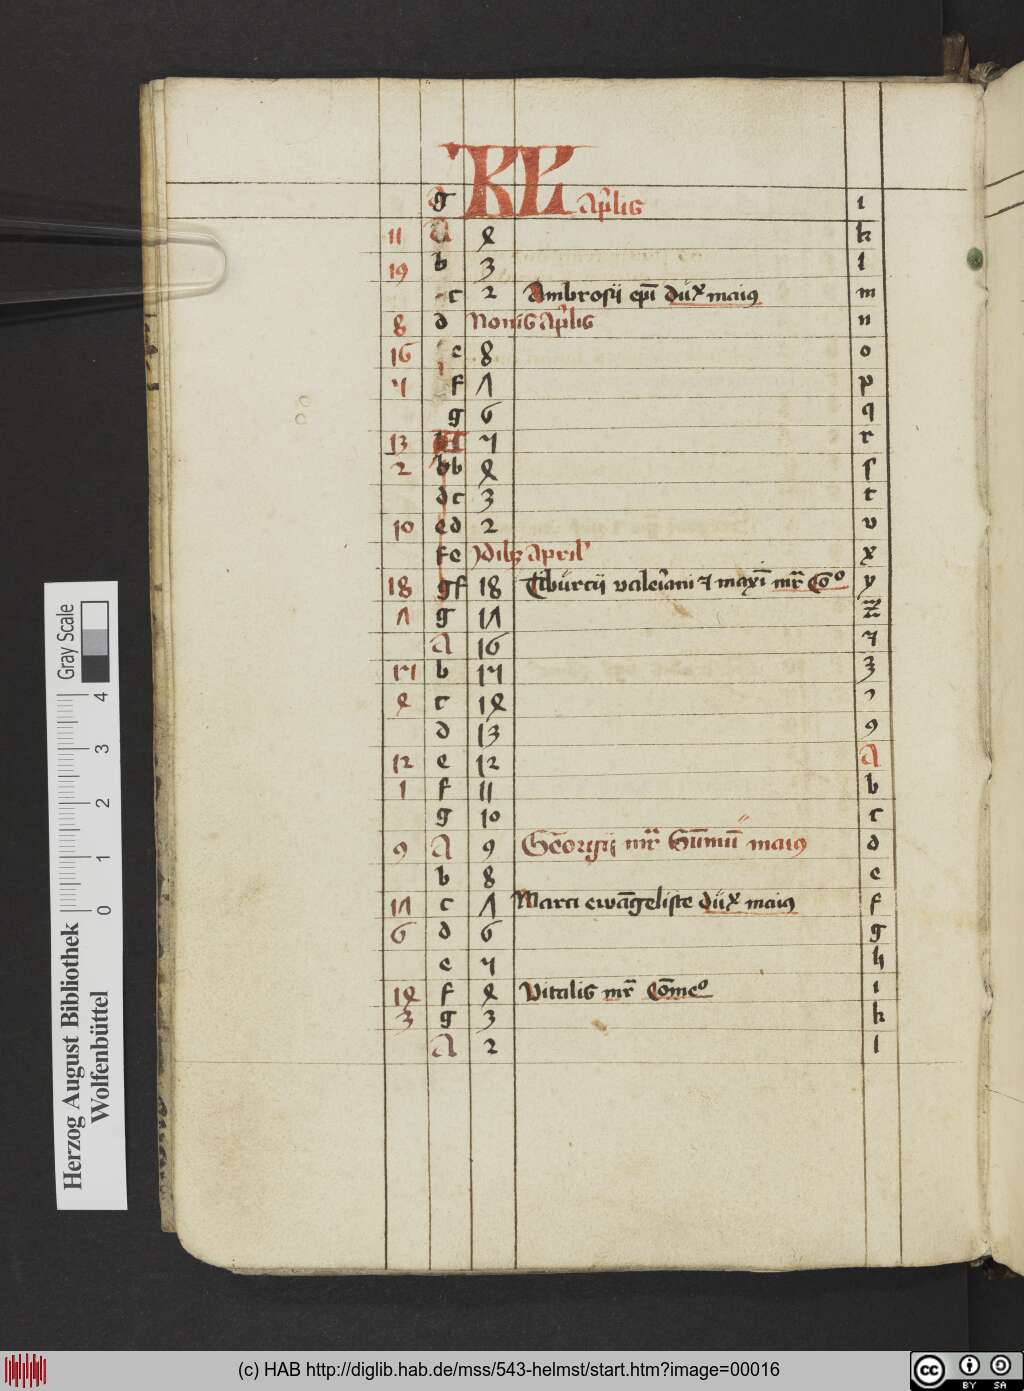 g KL Aplis i
11 A 4 k
19 b 3 l
c 2 Ambrosij epi dux maius m
8 d Nonis Aplis n
16 e 8 o
5 f 7 p
g 6 q
13 A 5 r
2 bb 4 ſ
dc 3 t
10 ed 2 v
fe Idibꝫ April x
18 gf 18 Tiburcij valeriani ⁊ maxi mr Co° y
7 g 17 z
A 16 ⁊
15 b 15 3
4 c 14 ɔ
d 13 9
12 e 12 A
1 f 11 b
g 10 c
9 A 9 Georgij mr Summu maiꝰ d
b 8 e
17 c 7 Marci ewāgeliste dux maiꝰ f
6 d 6 g
e 5 h
14 f 4 Vitalis mr Cōmeo i
3 g 3 k
A 2 l
Herzog August Bibliothek
Wolfenbüttel
0 1 2 3 4
Gray Scale
(c) HAB http://diglib.hab.de/mss/543-helmst/start.htm?image=00016
cc BY SA